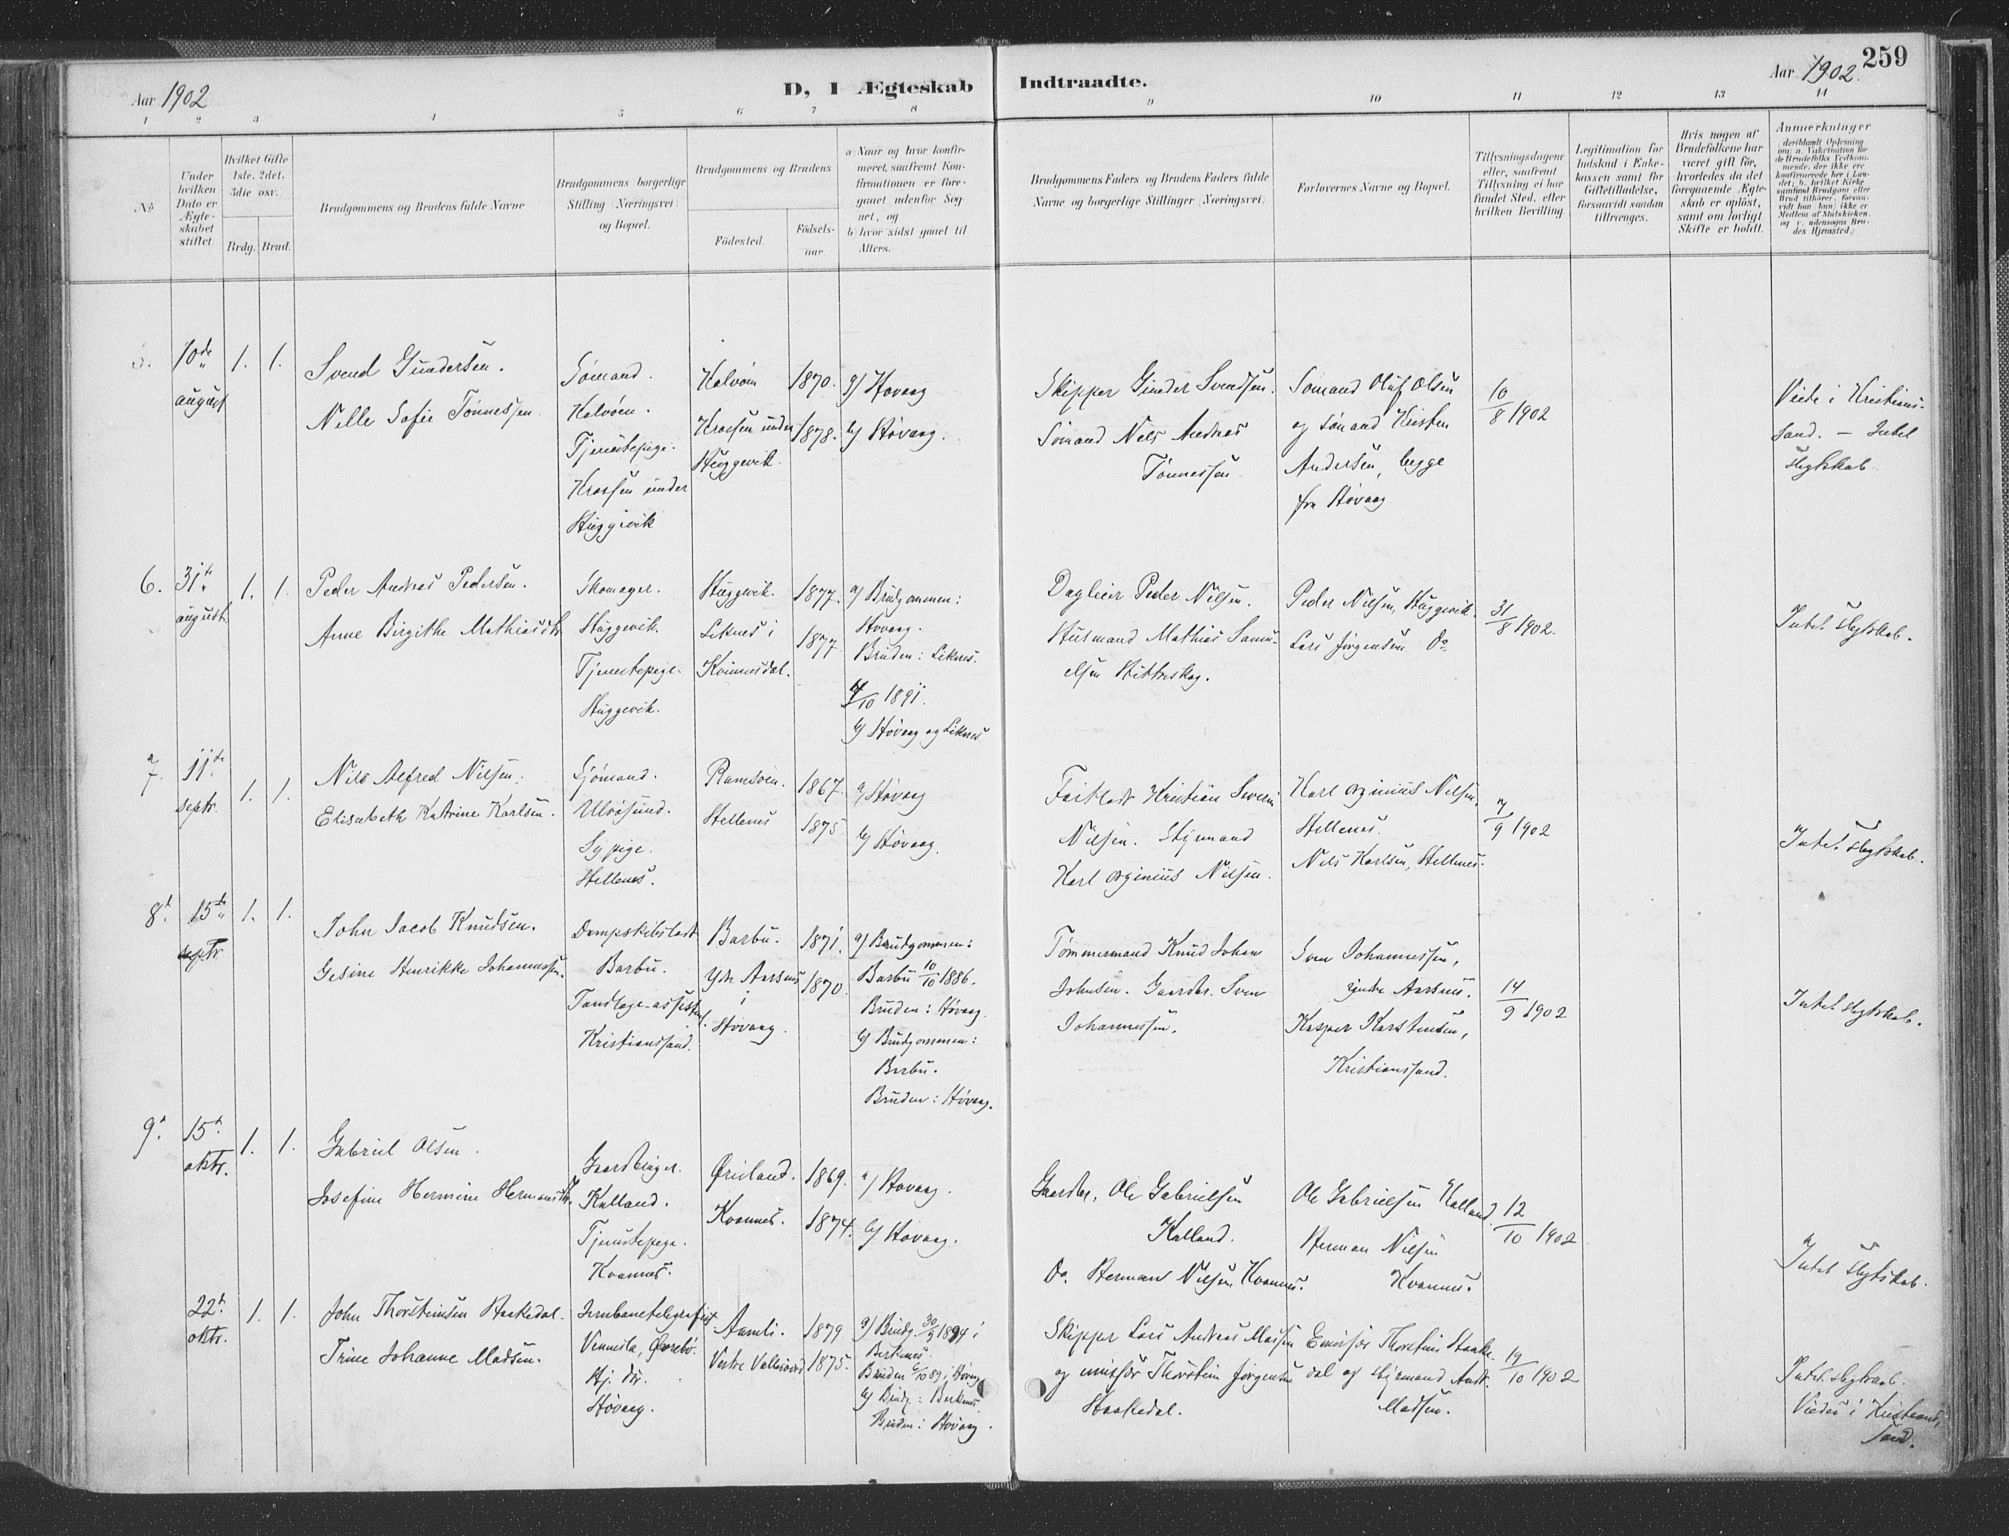 Aar 1902
D, I Ægteskab
Indtraadte.
Aar 1902.
259
1 2 3 4 5 6 7 8
9 10 11 12 13 14
No
Under hvilken Dato er Ægteskabet stiftet
Hvilket Gifte 1ste. 2det. 3die osv.
Brdg. Brud.
Brudgommens og Brudens fulde Navne
Brudgommens borgerlige Stilling (Næringsvei) og Bopæl.
Brudgommens og Brudens
Födested.
Födselsaar
a) Naar og hvor konfirmeret, saafremt Konfirmationen er foregaaet udenfor Sognet, og
b) hvor sidst gaaet til Alters.
Brudgommens Faders og Brudens Faders fulde Navne og borgerlige Stillinger (Næringsvei)
Forlovernes Navne og Bopæl.
Tillysningsdagene eller, saafremt Tillysning ei har fundet Sted, efter hvilken Bevilling.
Legitimation for Indskud i Enkekassen samt for Giftetilladelse, forsaavidt saadan tiltrænges.
Hvis nogen af Brudefolkene har været gift för, hvorledes da det foregaaende Ægteskab er oplöst, samt om lovligt Skifte er holdt.
Anmærkninger
5. 10de august 1. 1.
Svend Gundersen.
Nelle Sofie Tønnessen
Sømand.
Kalvøen.
Tjenestepige.
Kraesen under
Hæggevik
Kalvøen 1870.
Kraesen under Hæggevik. 1878.
a) Høvaag
b) Høvaag.
Skipper Gunder Svendsen.
Sømand Nels Andreas
Tønnessen.
Sømand Oluf Olsen
og Sømand Kristen
Andersen, begge
fra Høvaag
10/8 1902
Viede i Kristians-
sand. – Intet
slegtskab.
6. 31te august. 1. 1.
Peder Andreas Pedersen.
Anne Birgithe Mathiasdtr
Skomager.
Hæggevik.
Tjenestepige.
Hæggevik.
Hæggevik. 1877.
Liknes i
Kvinnesdal. 1877
a) Brudgommen:
Høvaag.
Bruden: Liknes.
4/10 1891.
b) Høvaag og Liknes
Dagleier Peder Nilsen.
Husmand Mathias Samu-
elsen
Peder Nilsen, Hæggevik.
Lars Jørgensen Do
31/8 1902.
Intet slegtskab.
7. 11te septr. 1. 1.
Nils Alfred Nilsen.
Elisabeth Katrine Karlsen.
Sjømand.
Ulvøsund.
Sypige.
Stellenes.
Ramsøen. 1867.
Stellenes 1875.
a) Høvaag
b) Høvaag.
Kristian Severin
Nilsen. Styrmand
Karl Nilsen.
Karl Nilsen.
Stellenes.
Nils Karlsen, Stellenes.
7/9 1902
Intet slegtskab.
8. 15de septr 1. 1.
John Jacob Knudsen.
Gesine Henrikke Johannessen.
Barbu.
Tandlæge-assistent.
Kristianssand.
Barbu. 1871.
Ytr Aarsnes
i
Høvaag. 1870.
a) Brudgommen:
Barbu 10/10 1886.
Bruden: Høvaag.
b) Brudgommen:
Barbu.
Bruden: Høvaag.
Tømmermand Knud Johan
Johnsen. Gaardbr. Sven
Johannessen.
Sven Johannessen,
Aarsnes.
Kasper Karstensen,
Kristianssand.
14/9 1902
Intet slegtskab.
9. 15de oktr. 1. 1.
Gabriel Olsen.
Josefine Hermine Hermansdtr.
Gaardbruger.
Kalland.
Tjenestepige.
Kvannes.
Øreland. 1869.
Kvannes. 1874.
a) Høvaag.
b) Høvaag.
Gaardbr. Ole Gabrielsen
Kalland.
Do. Herman Nilsen Kvannes.
Ole Gabrielsen Kalland.
Herman Nilsen
Kvannes.
12/10 1902
Intet slegtskab.
22de oktr. 1. 1.
John Thorsteinsen Haakedal.
Trine Johanne Madsen.
Jernbanetelegrafist
Vennesla, Øvrebø.
Hj. dtr.
Høvaag.
Aamli. 1879
Vestre Vallesverd 1875.
a) Brudg. 30/9 1894 i
Birkenes.
Bruden 6/10 89 i Høvaag
b) Brudg: Berkenes.
Bruden: Høvaag.
Skipper Lars Andreas Massen
og emisær Thorstein Jørgensen
Haakedal.
Emisær Thorstein Haake-
dal og Styrmand Andr.
Madsen.
19/10 1902
Intet slegtskab.
Viedes i Kristians-
sand.